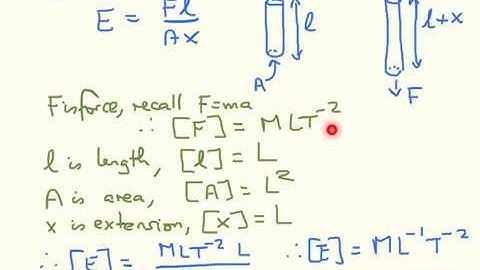 E = Fl / Ax
l
l+x
A
F
F is force, recall F=ma
∴ [F] = MLT⁻²
l is length, [l] = L
A is area, [A] = L²
x is extension, [x] = L
∴ [E] = MLT⁻² L
∴ [E] = ML⁻¹T⁻²